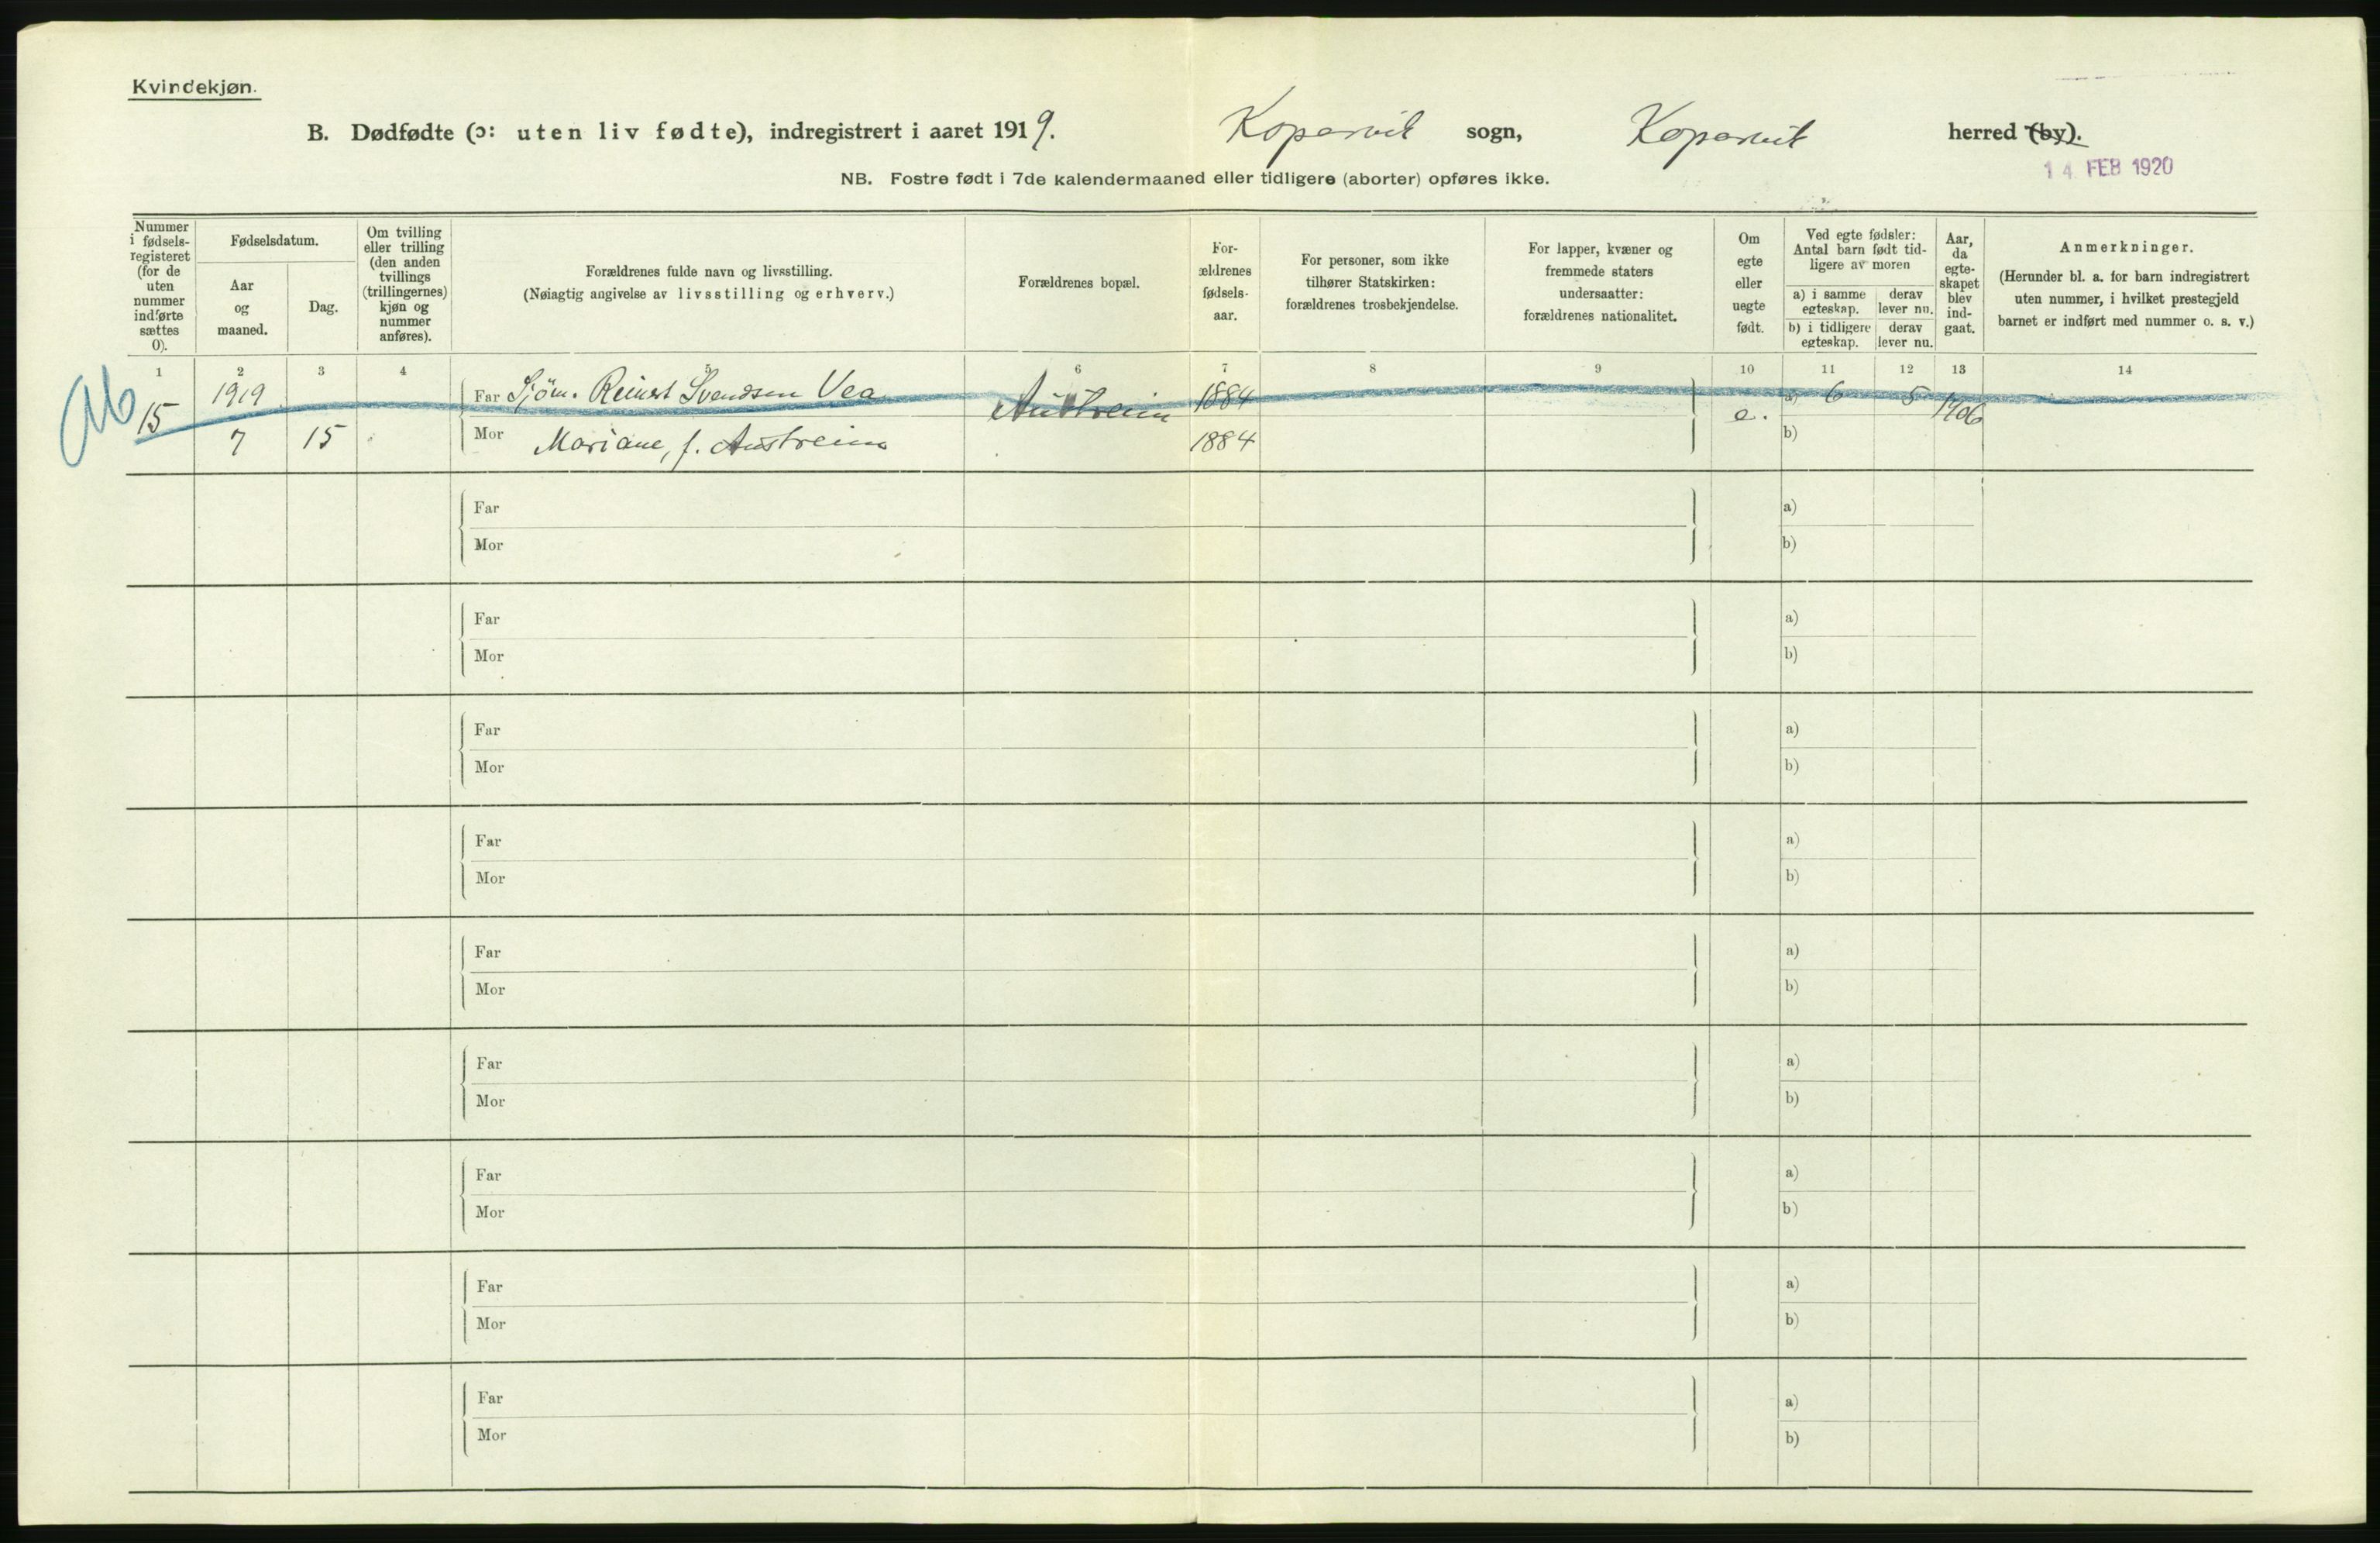 Kvindekjøn.
B. Dødfødte (ɔ: uten liv fødte), indregistrert i aaret 1919. Kopervik sogn, Kopervik herred (by).
14 FEB 1920
NB. Fostre født i 7de kalendermaaned eller tidligere (aborter) opføres ikke.
Nummer i fødsels-registeret (for de uten nummer indførte sættes 0).
Fødselsdatum.
Aar og maaned.
Dag.
Om tvilling eller trilling (den anden tvillings (trillingernes) kjøn og nummer anføres).
Forældrenes fulde navn og livsstilling.
(Nøiagtig angivelse av livsstilling og erhverv.)
Forældrenes bopæl.
For-ældrenes fødsels-aar.
For personer, som ikke tilhører Statskirken: forældrenes trosbekjendelse.
For lapper, kvæner og fremmede staters undersaatter: forældrenes nationalitet.
Om egte eller uegte født.
Ved egte fødsler: Antal barn født tid-ligere av moren
a) i samme egteskap.
derav lever nu.
b) i tidligere egteskap.
derav lever nu.
Aar, da egte-skapet blev ind-gaat.
Anmerkninger.
(Herunder bl. a. for barn indregistrert uten nummer, i hvilket prestegjeld barnet er indført med nummer o. s. v.)
1 2 3 4 5 6 7 8 9 10 11 12 13 14
Ab 15 1919 Far Sjøm. Reinert Svendsen Vea Austreim 1884 e. a) 6 5 1906
7 15 Mor Mariane, f. Austreim 1884 b)
Far a)
Mor b)
Far a)
Mor b)
Far a)
Mor b)
Far a)
Mor b)
Far a)
Mor b)
Far a)
Mor b)
Far a)
Mor b)
Far a)
Mor b)
Far a)
Mor b)